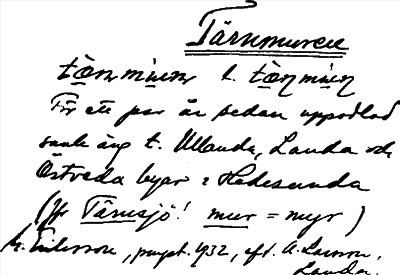 Tärnmuren
tœnmurn l. tœnmurn
För ett par år sedan uppodlad
samt äng t. Ullanda, Landa och
Östveda byar i Hedesunda
(Jfr Tärnsjö! mur = myr)
Eriksson, 1932, eft. A. Larsson,
Landa.